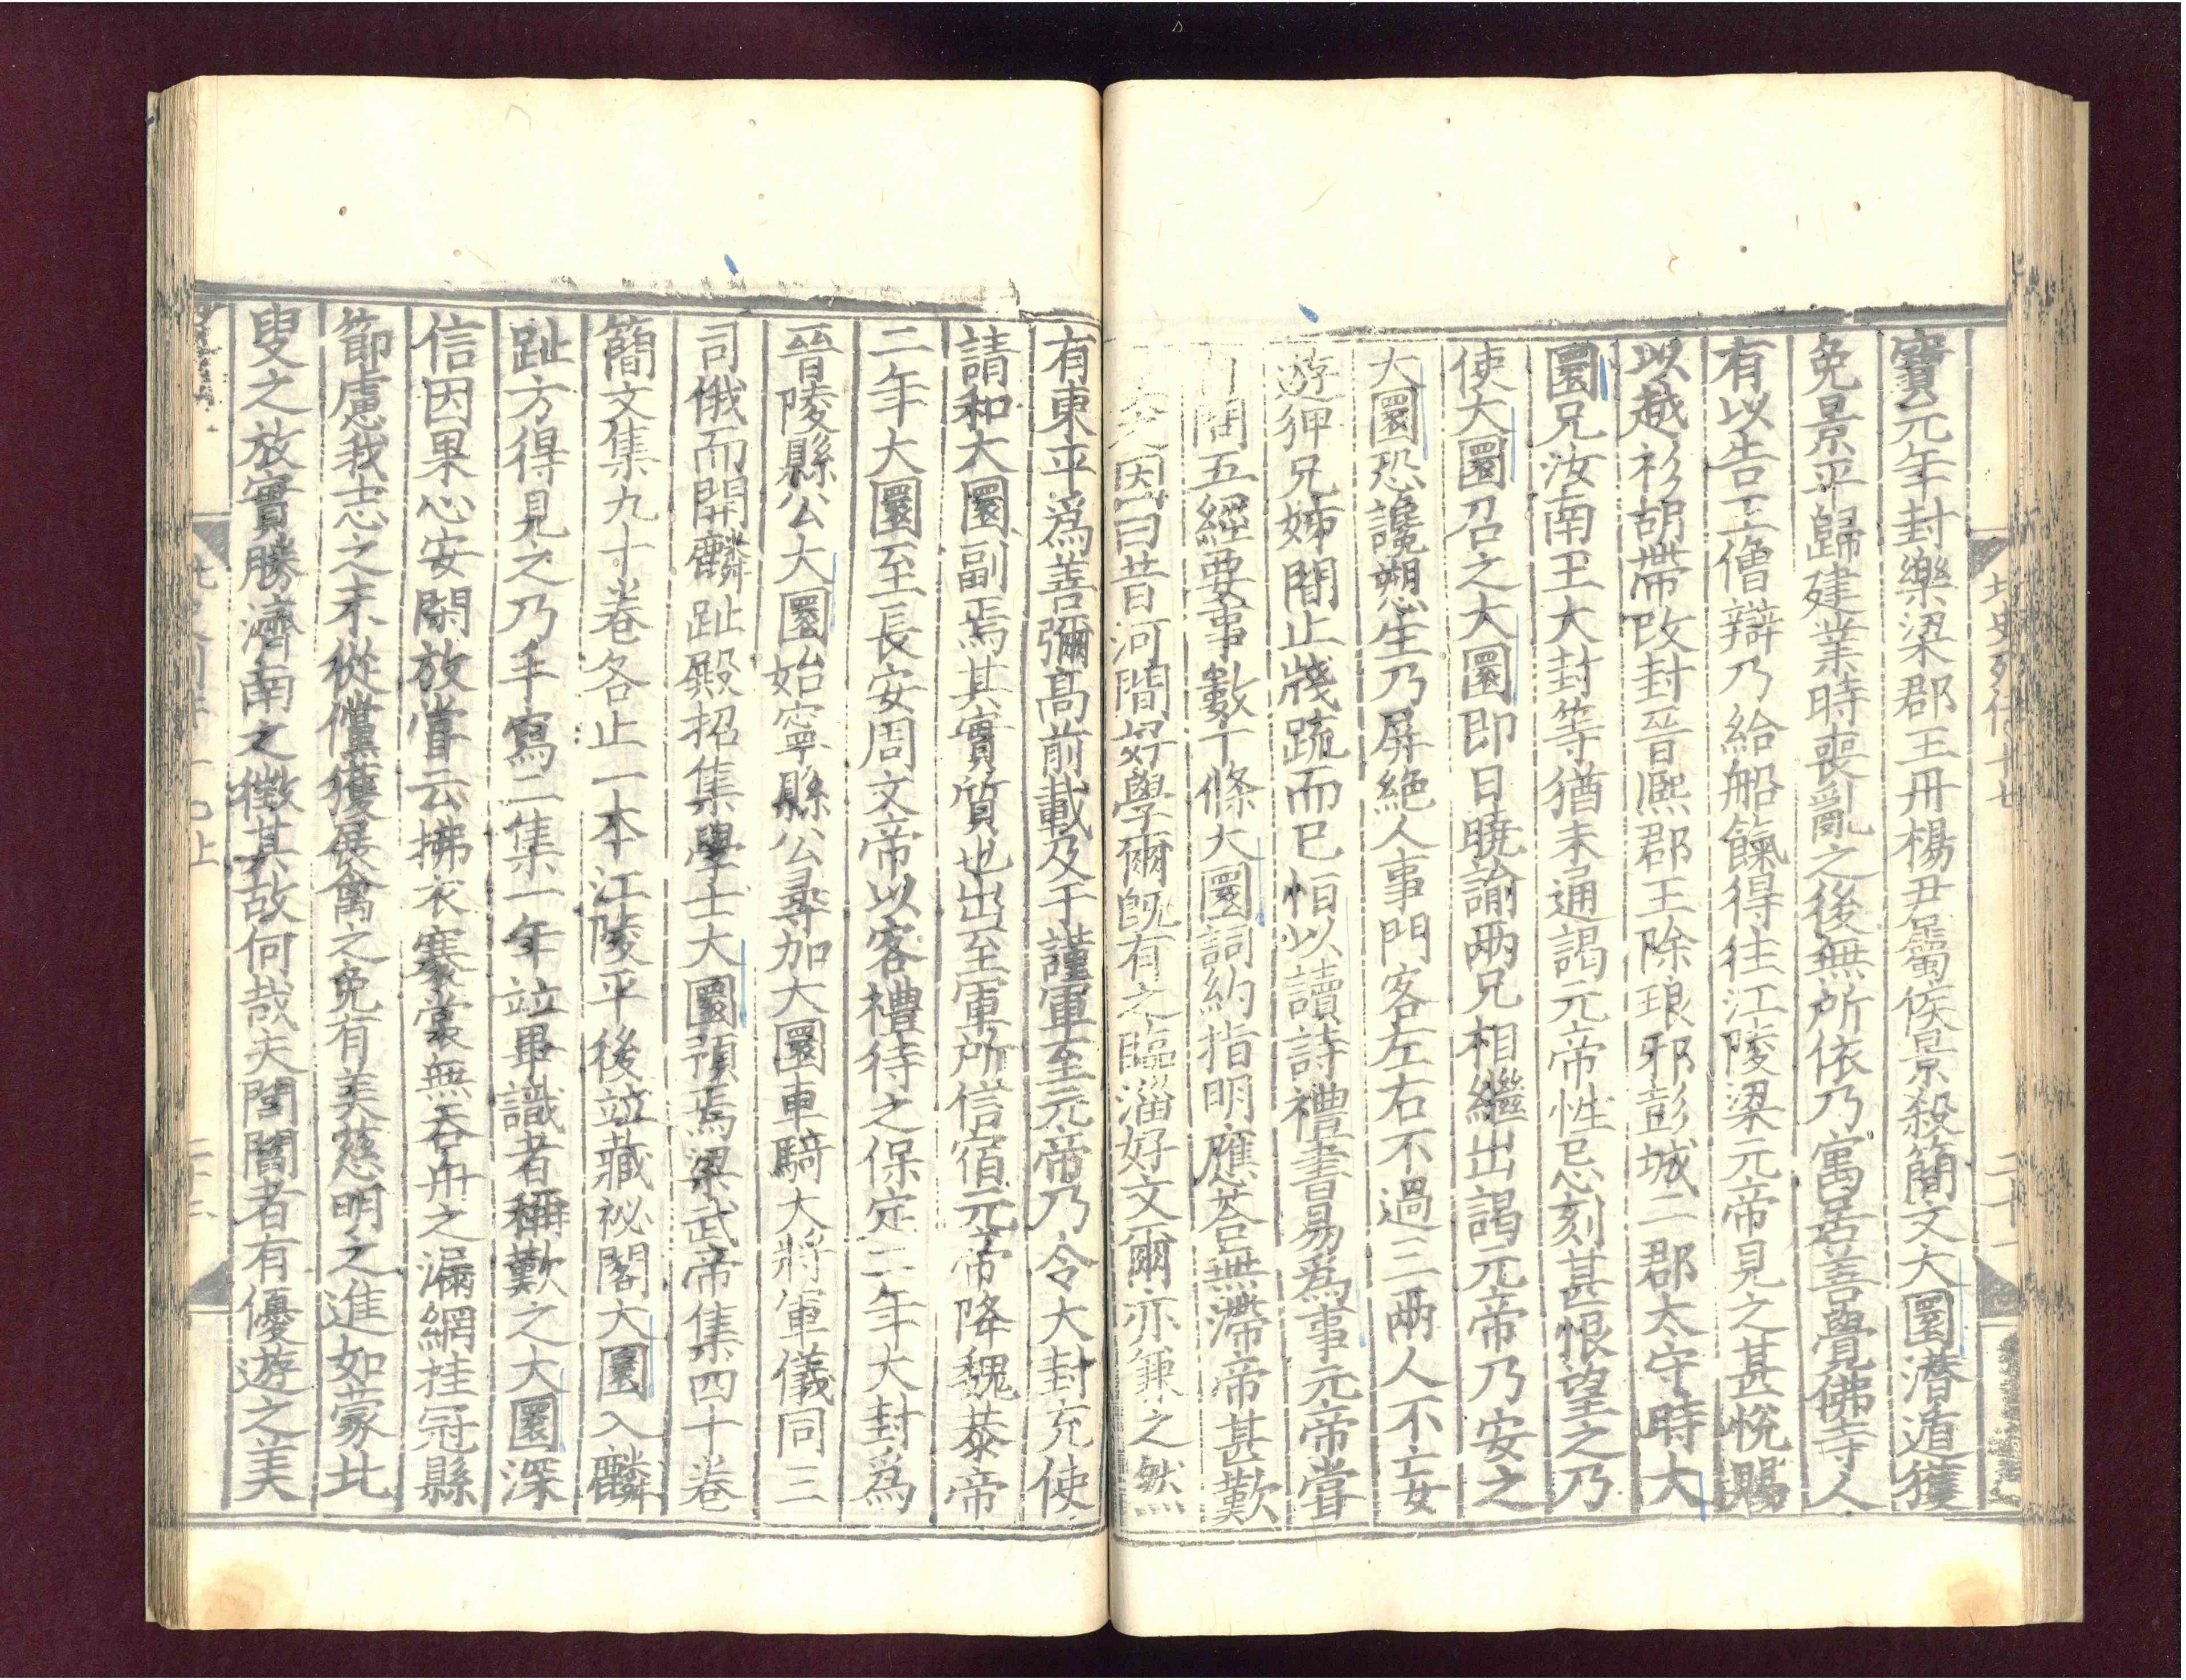 寶元年封樂梁郡王丹楊尹屬候景殺簡文大圜潛遁獲
免景平歸建業時喪亂之後無所依乃寓居善覺佛寺人
有以告王僧辯乃給船餼得往江陵梁元帝見之甚悅賜
以越衫胡帶改封晉熙郡王除琅邪彭城二郡太守時大
圜兄汝南王大封等猶未通謁元帝性忌刻甚恨望之乃
使大圜召之大圜即日曉諭兩兄相繼出謁元帝乃安之
大圜恐讒愬生乃屏絕人事門客左右不過三兩人不亡女
遊狎兄姊間止牋疏而已恒以讀詩禮書易爲事元帝嘗
問五經要事數十條大圜詞約指明應荅無滯帝甚歎
因曰昔河間好學爾旣有之臨淄好文爾亦兼之然
有東平爲善彌高前載及于謹軍至元帝乃令大封充使
請和大圜副焉其實質也出至軍所信宿元帝降魏恭帝
二年大圜至長安周文帝以客禮待之保定二年大封爲
晉陵縣公大圜始寧縣公尋加大圜車騎大將軍儀同三
司俄而開麟趾殿招集學士大圜預焉梁武帝集四十卷
簡文集九十卷各止一本江陵平後竝藏祕閣大圜入麟
趾方得見之乃手寫二集一年竝畢識者稱歎之大圜深
信因果心安閑放嘗云拂衣褰裳無吞舟之漏網挂冠縣
節慮我志之未從儻獲展禽之免有美慈明之進如蒙北
叟之放實勝濟南之徵其故何哉夫閭閻者有優遊之美